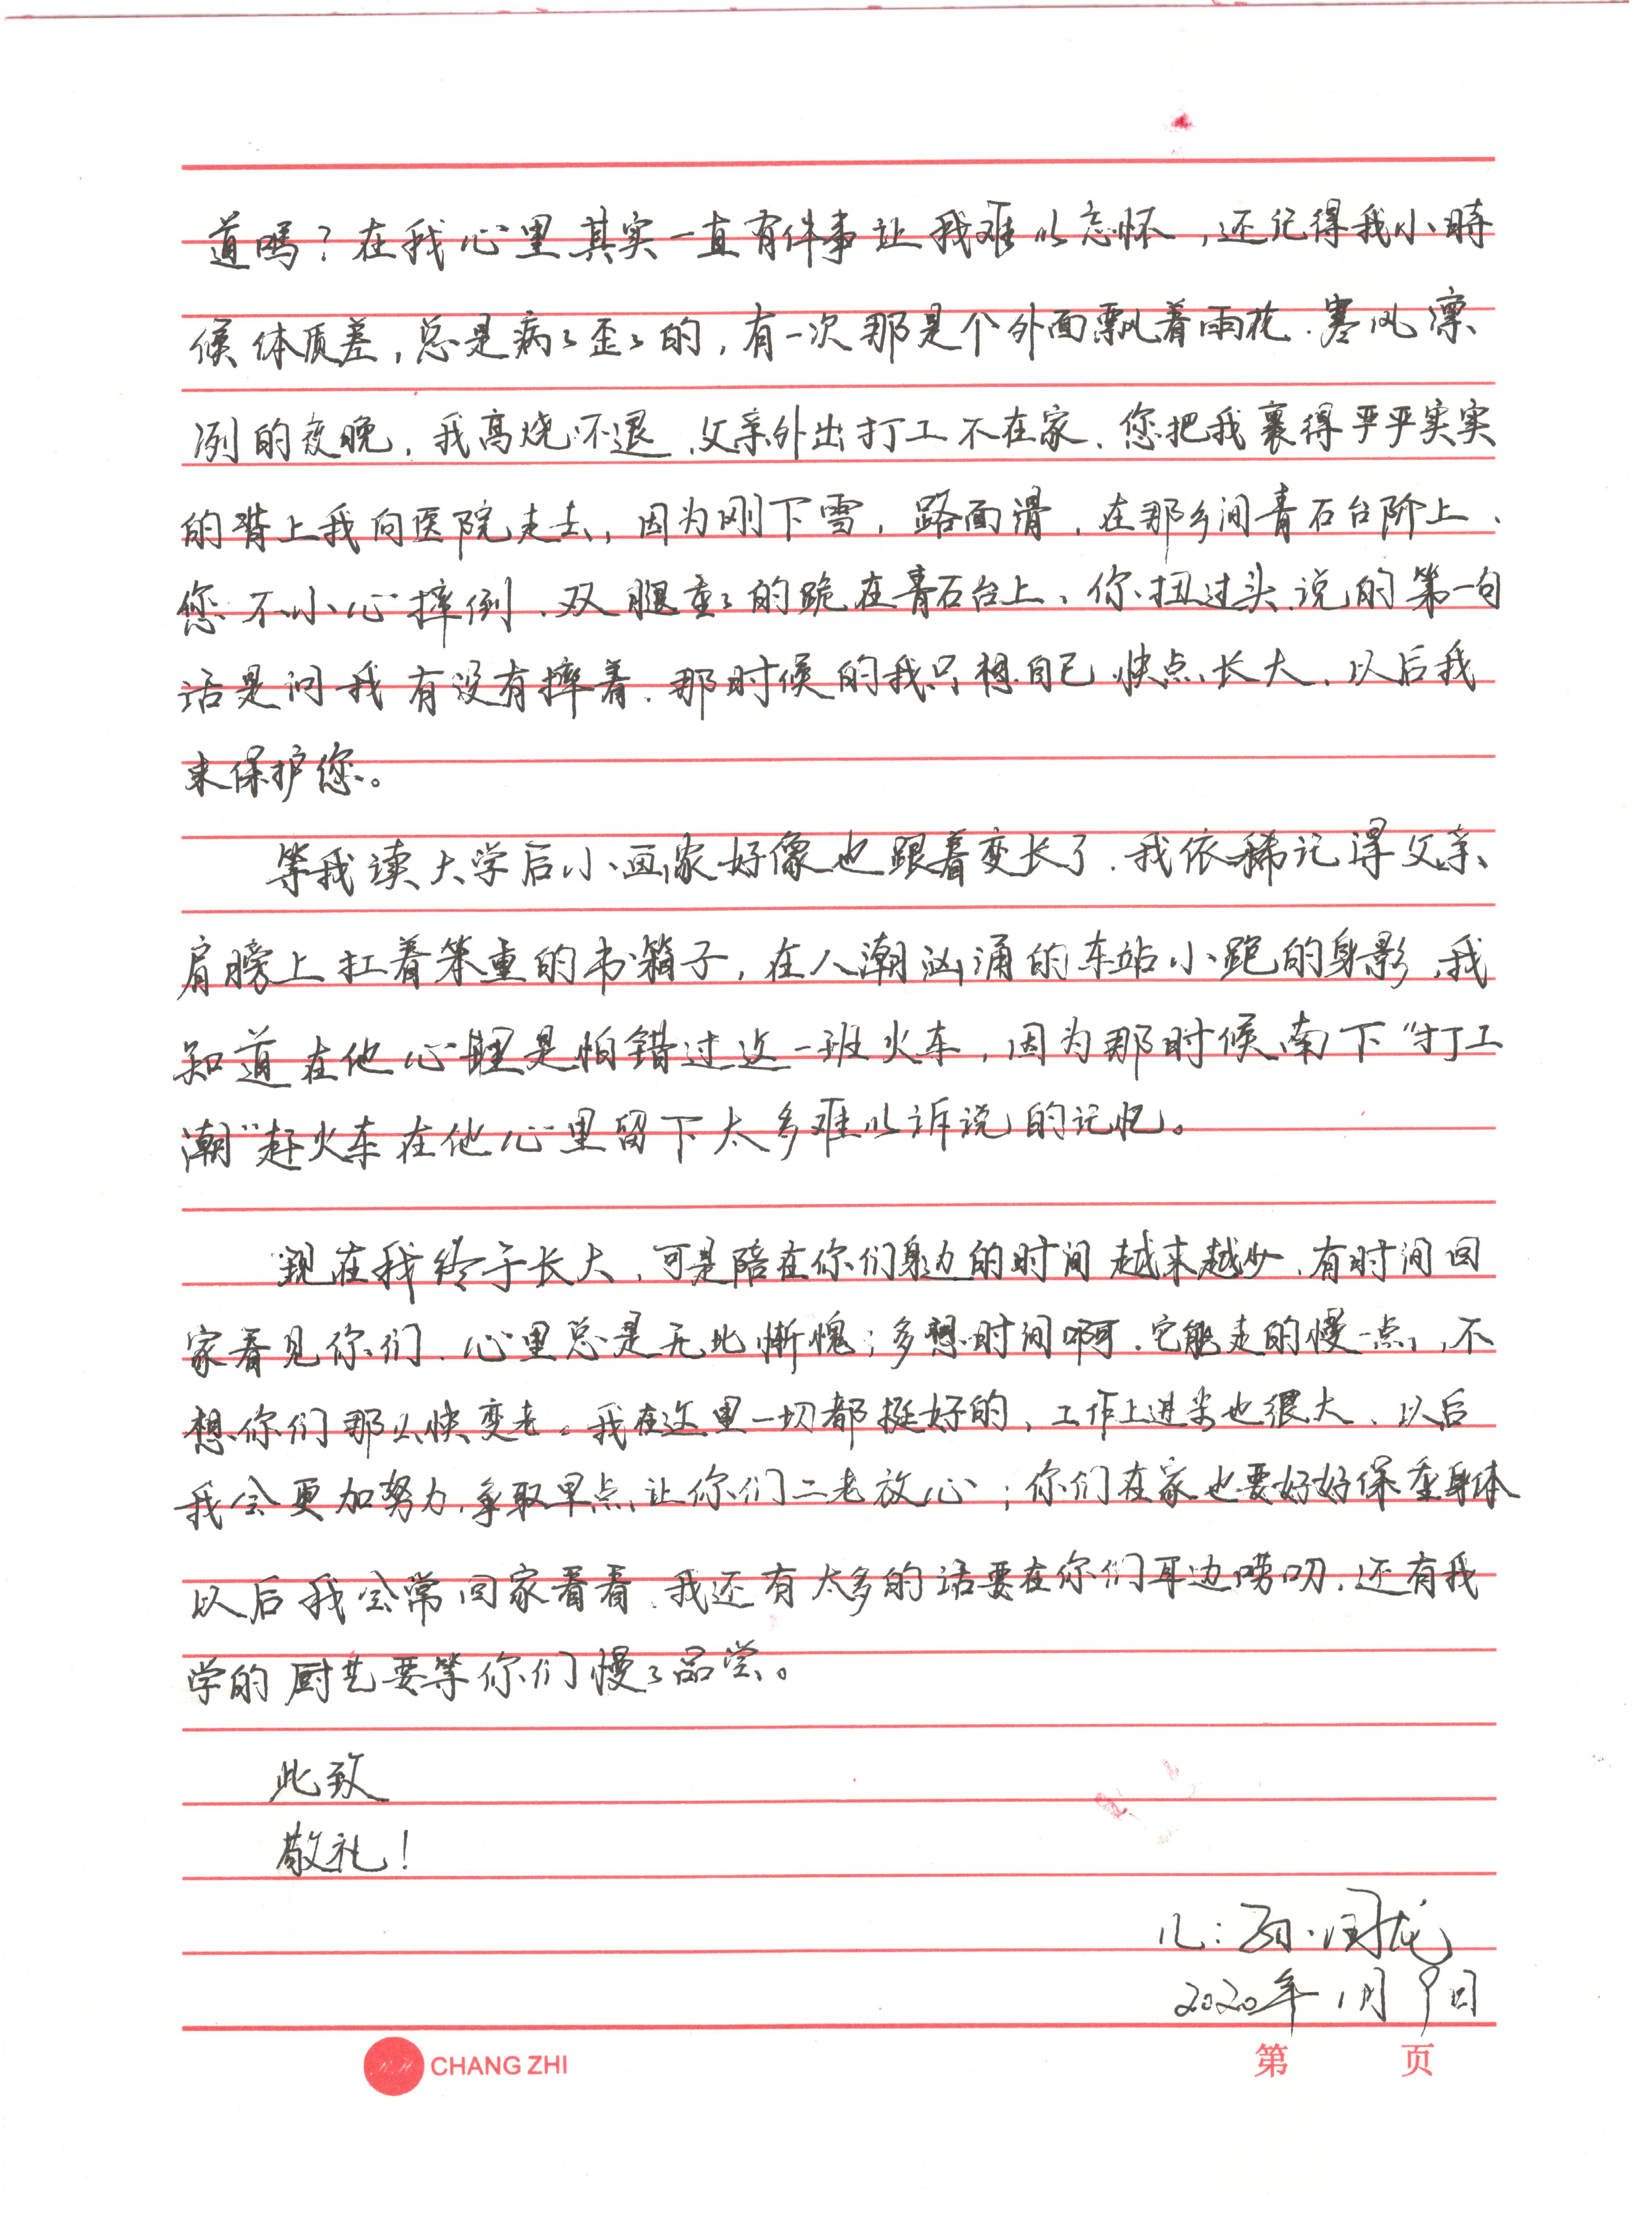 道吗？在我心里其实一直有件事让我难以忘怀，还记得我小時
候体质差，总是病々歪々的，有一次那是个外面飘着雨花．寒风凛
冽的夜晚，我高烧不退，父亲外出打工不在家、您把我裹得严严实实
的背上我向医院走去，因为刚下雪，路面滑，在那乡间青石台阶上、
您不小心摔倒、双腿重々的跪在青石台上、你扭过头说的第一句
话是问我有没有摔着．那时候的我只想自己快点长大、以后我
来保护您。
等我读大学后小画家好像也跟着变长了．我依稀记得父亲
肩膀上扛着笨重的书箱子，在人潮汹涌的车站小跑的身影，我
知道在他心里是怕错过这一班火车，因为那时候南下“打工
潮”赶火车在他心里留下太多难以诉说的记忆。
现在我终于长大，可是陪在你们身边的时间越来越少，有时间回
家看见你们、心里总是无比惭愧；多想时间啊．它能走的慢一点，不
想你们那么快变老。我在这里一切都挺好的，工作上进步也很大、以后
我会更加努力，争取早点让你们二老放心；你们在家也要好好保重身体
以后我会常回家看看．我还有太多的话要在你们耳边唠叨．还有我
学的厨艺要等你们慢々品尝。
此致
敬礼！
儿：闰龙
2020年1月9日
CHANG ZHI
第 页